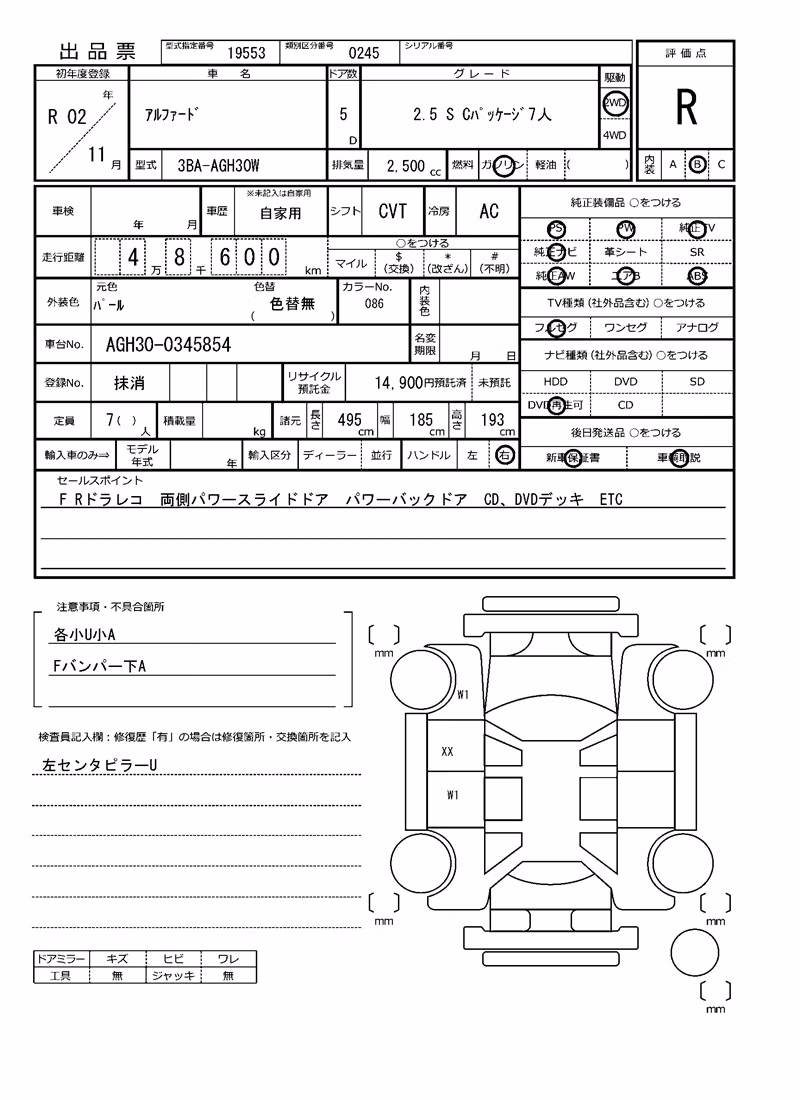 出品票
型式指定番号 19553 類別区分番号 0245 シリアル番号
評価点
R
内装 A B C
初年度登録 車名 ドア数 グレード 駆動
R 02 年 11 月 アルファード 5 D 2.5 S Cパッケージ7人 2WD
4WD
型式 3BA-AGH30W 排気量 2,500 cc 燃料 ガソリン 軽油 ( )
車検 年 月 車歴 ※未記入は自家用 自家用 シフト CVT 冷房 AC
走行距離 4 万 8 千 6 0 0 km
○をつける
マイル $(交換) *(改ざん) #(不明)
外装色 元色 パール 色替 ( 色替無 ) カラーNo. 086 内装色
車台No. AGH30-0345854 名変期限 月 日
登録No. 抹消 リサイクル預託金 14,900円預託済 未預託
定員 7( )人 積載量 kg 諸元 長さ 495 cm 幅 185 cm 高さ 193 cm
輸入車のみ⇒ モデル年式 年 輸入区分 ディーラー 並行 ハンドル 左 右
純正装備品 ○をつける
PS PW 純正TV
純正ナビ 革シート SR
純正AW エアB ABS
TV種類(社外品含む)○をつける
フルセグ ワンセグ アナログ
ナビ種類(社外品含む)○をつける
HDD DVD SD
DVD再生可 CD
後日発送品 ○をつける
新車保証書 車輌取説
セールスポイント
F Rドラレコ 両側パワースライドドア パワーバックドア CD、DVDデッキ ETC
注意事項・不具合箇所
各小U小A
Fバンパー下A
検査員記入欄:修復歴「有」の場合は修復箇所・交換箇所を記入
左センタピラーU
ドアミラー キズ ヒビ ワレ
工具 無 ジャッキ 無
mm
mm
W1
XX
W1
mm
mm
mm